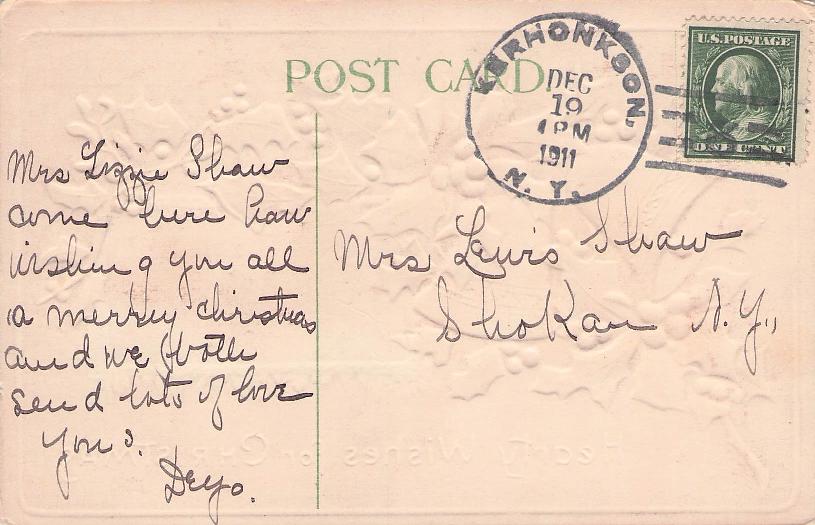 POST CARD
KERHONKSON,
DEC
19
1 PM
1911
N. Y.
U.S. POSTAGE
ONE CENT
Mrs Lizzie Shaw
come here
wishing you all
a merrey christmas
and we both
send lots of love
you.
Deyo.
Mrs Lewis Shaw
Shokan N.Y.,
Hearty Wishes for Christmas